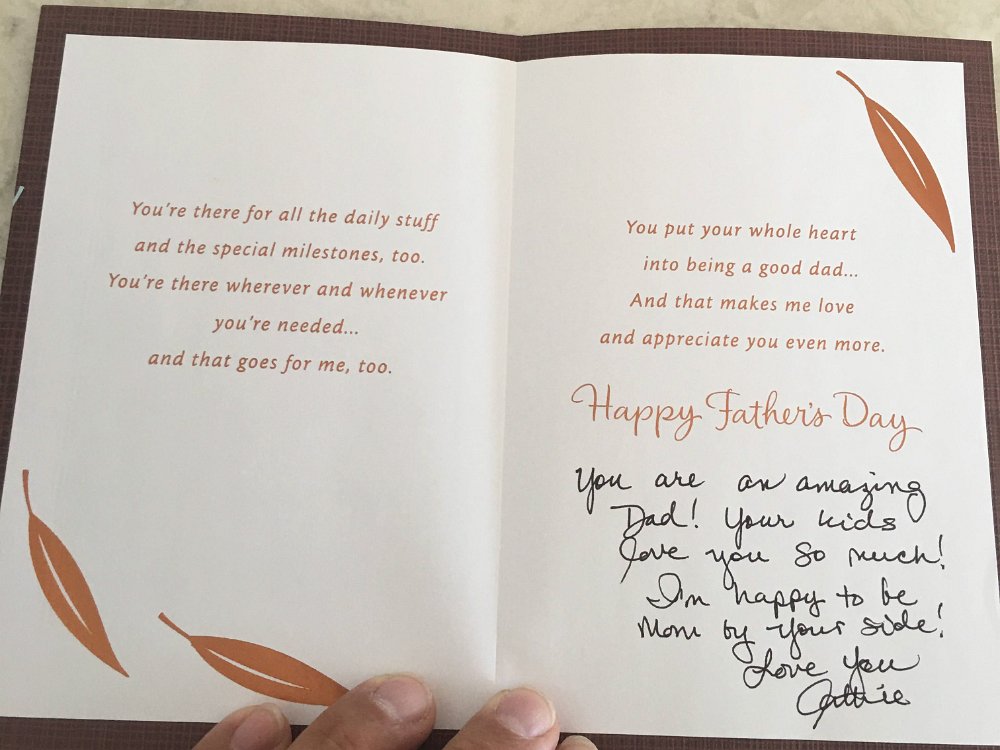 You're there for all the daily stuff
and the special milestones, too.
You're there wherever and whenever
you're needed...
and that goes for me, too.
You put your whole heart
into being a good dad...
And that makes me love
and appreciate you even more.
Happy Father's Day
You are an amazing
Dad! Your kids
love you so much!
I'm happy to be
Mom by your side!
Love you